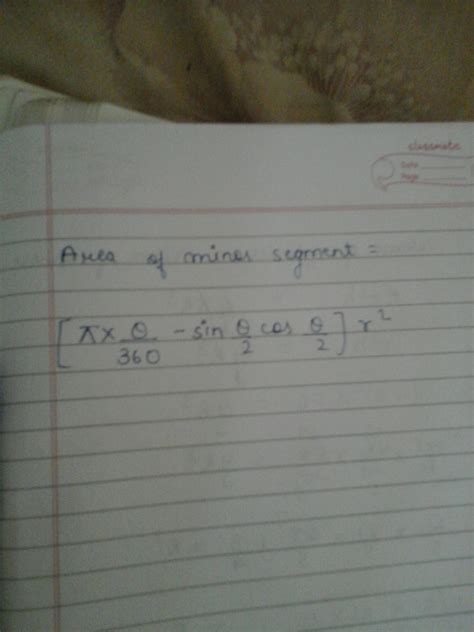 classmate
Date
Page
Area of minor segment =
[π× θ/360 - sin θ/2 cos θ/2] r²